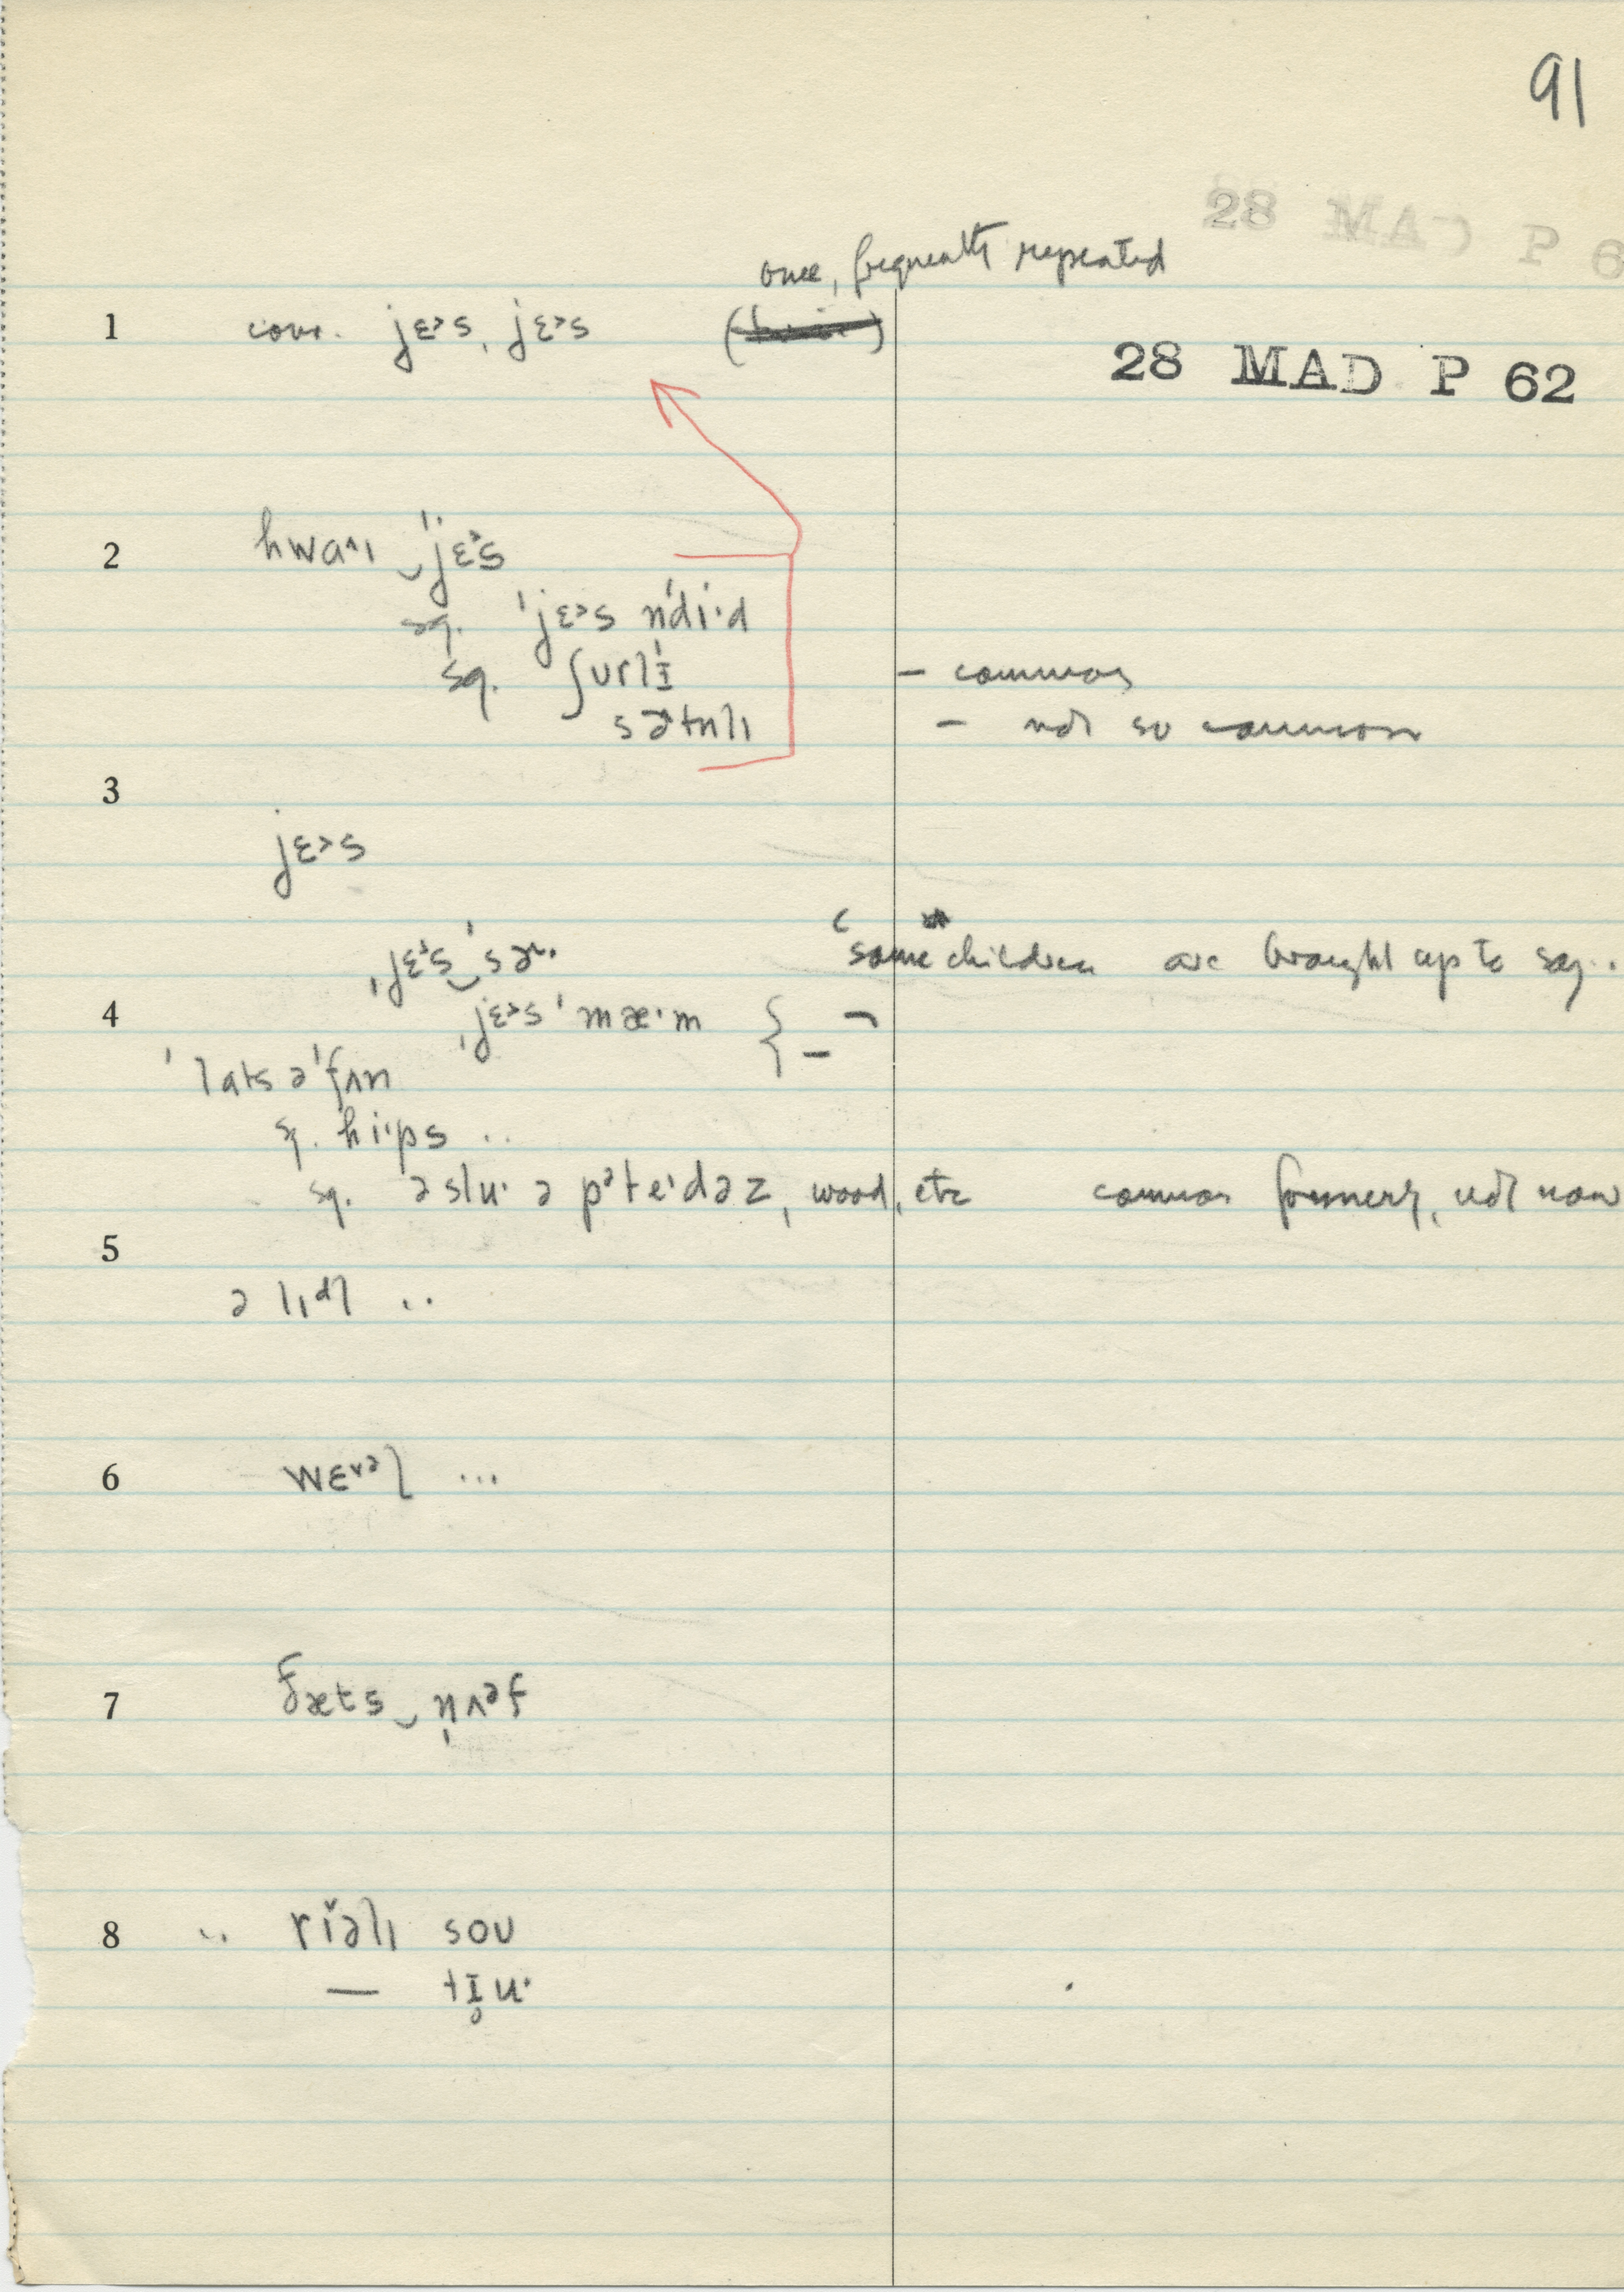 91
28 MAD P 6
once, frequently repeated
1 conv. jɛ˃s, jɛ˃s ( )
28 MAD P 62
2 hwaᴧı ‿ˈjɛ˃s
sq. ˈjɛ˃s n̍dıˑd
sq. ʃʊrlɪ̵ – common
sɚtnlı – not so common
3
jɛ˃s
ˌjɛ˃s‿ˈsɚˑ "some children are brought up to say..
4 ˌjɛ˃s ˈmæˑm { ¬
–
ˈlats əˈfʌn
sq. hiˑps ..
sq. ə slᴜˑ ə pᵊteˑdəz, wood, etc common formerly, not now
5
ə lıdl ..
6 wɛ˅ᵊl ...
7 fæts‿n̩ʌᵊf
8 .. riə̆lı soʊ
— tɪ̥ᴜˑ